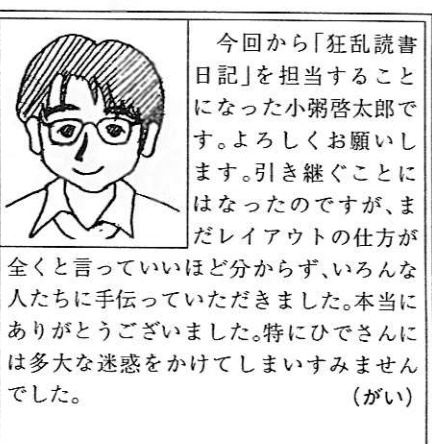 今回から「狂乱読書
日記」を担当すること
になった小粥啓太郎で
す。よろしくお願いし
ます。引き継ぐことに
はなったのですが、ま
だレイアウトの仕方が
全くと言っていいほど分からず、いろんな
人たちに手伝っていただきました。本当に
ありがとうございました。特にひでさんに
は多大な迷惑をかけてしまいすみません
でした。 (がい)